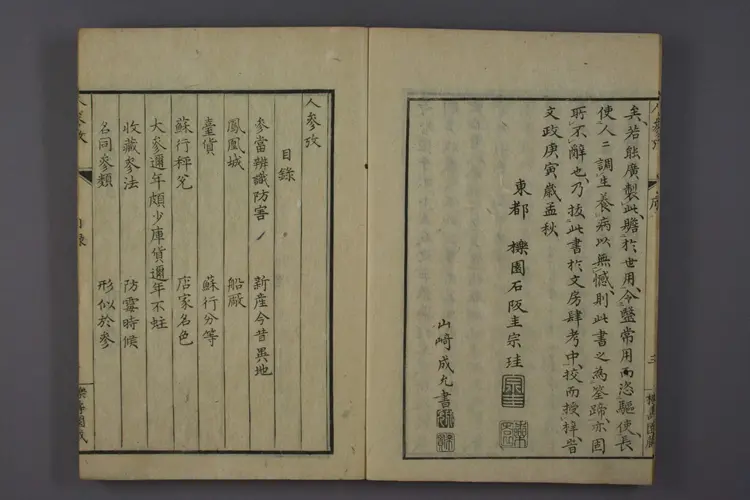 矣若能廣製此贍於世用令毉常用而恣驅使長
使人々調生養病以無憾則此書之為筌蹄亦固
所不辭也乃拔此書於文房肆考中挍而授梓旹
文政庚寅歲孟秋
東都 櫟園石阪圭宗珪
山崎成九書
人參攷
目錄
參當辨識防害 新產今昔異地
鳳凰城 船厰
臺貨 蘇行分等
蘇行秤兌 店家名色
大參邇年頗少庫貨邇年不蛀
收藏參法 防霉時候
名同參類 形似於參
人參攷
目錄